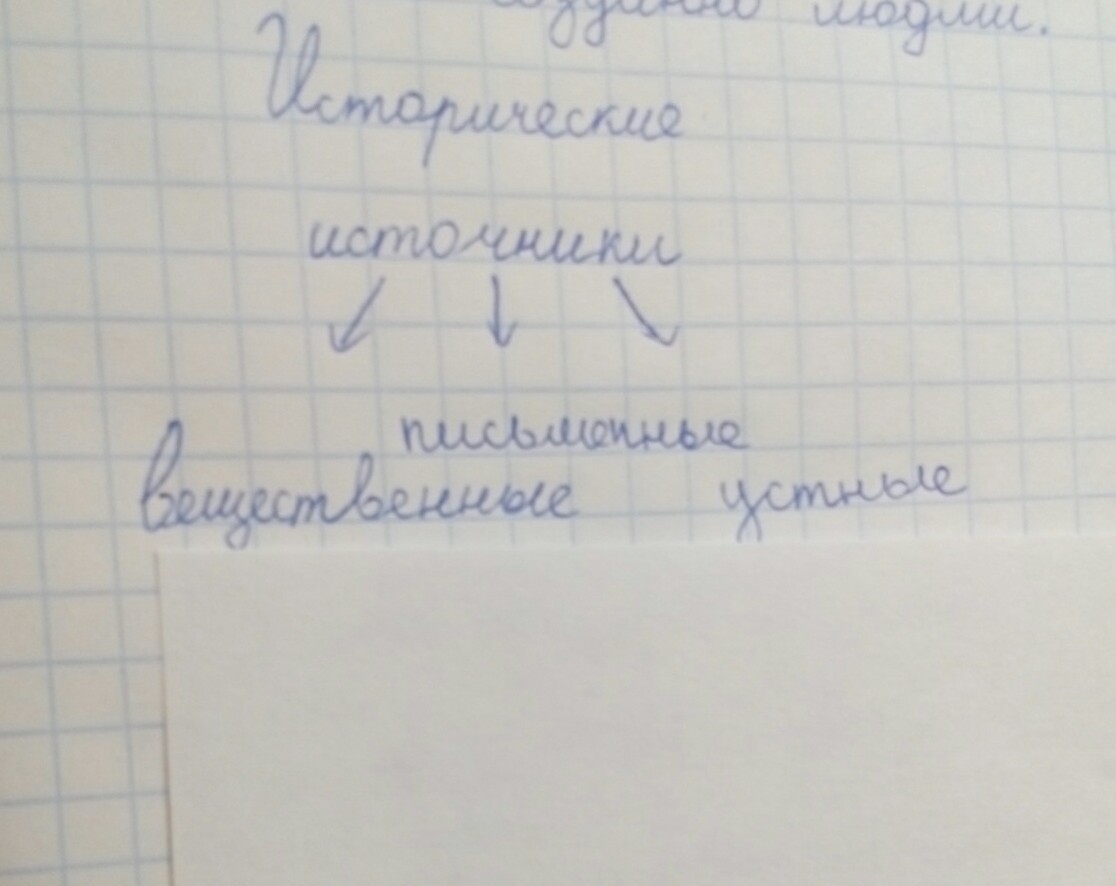 создано людми.
Исторические
источники
письменные
вещественные устные